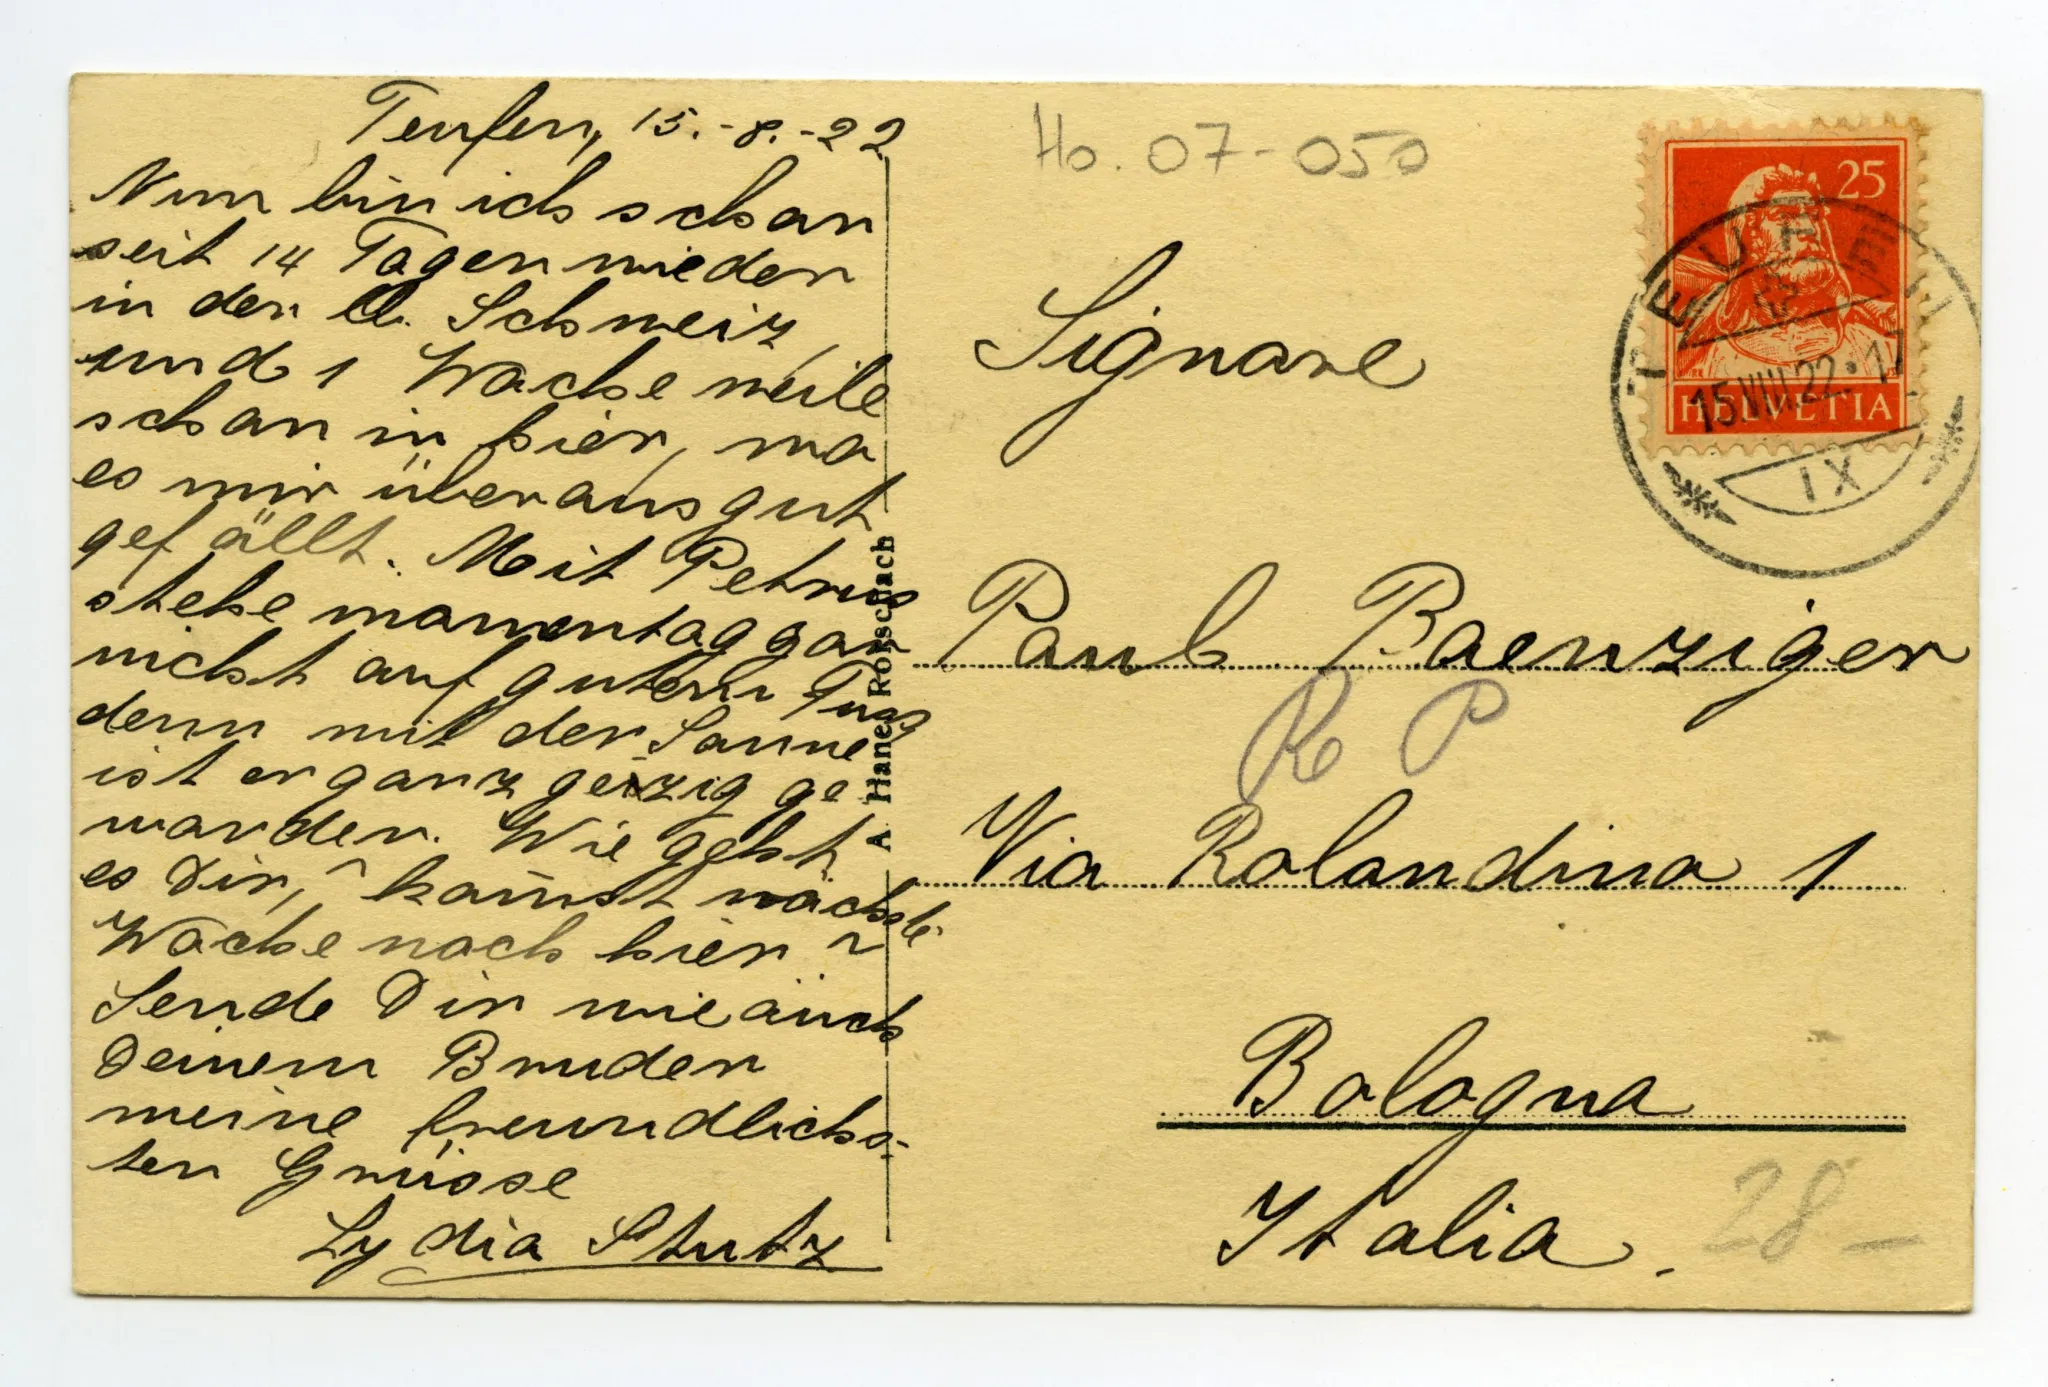 Teufen, 15.-8.-22
Nun bin ich schon
seit 14 Tagen wieder
in der lb. Schweiz,
und 1 Woche weile
schon in hier, wo
es mir überaus gut
gefällt. Mit Petrus
stehe momentag gar
nicht auf gutem Fuss
denn mit der Sonne
ist er ganz geizig ge
worden. Wie geht
es Dir, kommst nächste
Woche nach hier?
Sende Dir wie auch
Deinem Bruder
meine freundlichs-
ten Grüsse
Lydia Stutz
A. Hane, Rorschach
Ho. 07-050
25
HELVETIA
TEUFEN
15.VIII.22.17
IX
Signore
Paul Baenziger
R P
Via Rolandino 1
Bologna
Italia.
28 –